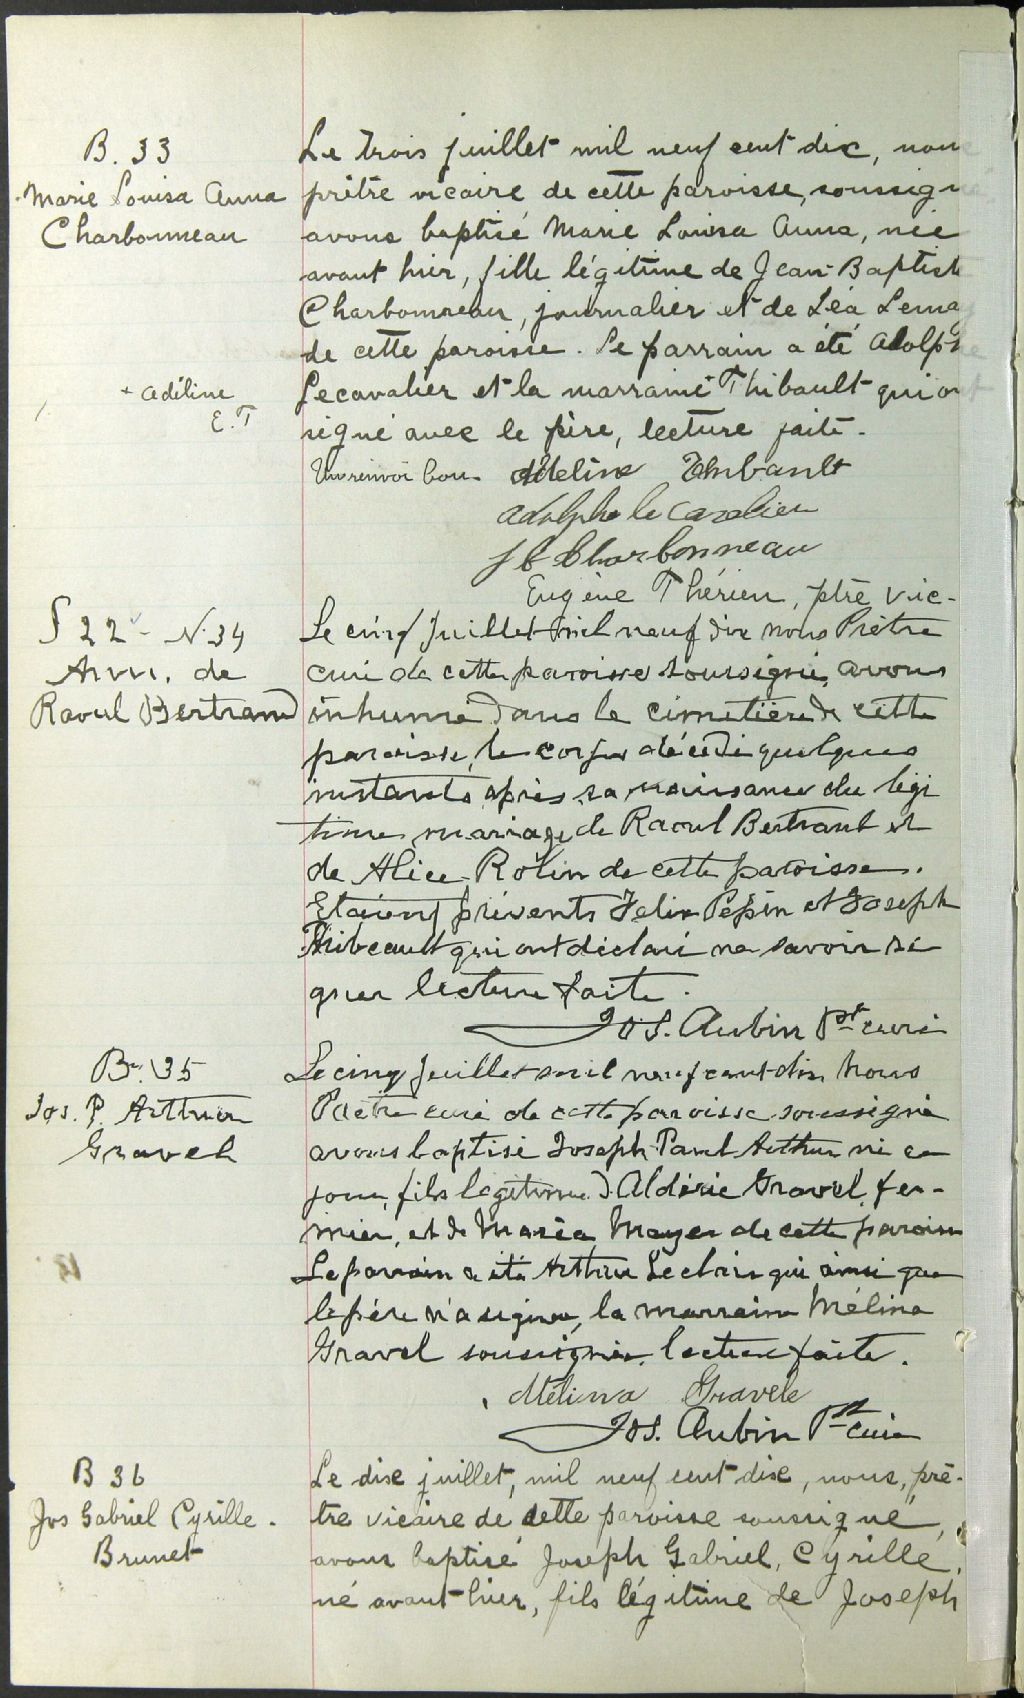 B. 33
Marie Louisa Anna
Charbonneau
Le trois juillet mil neuf cent dix, nous
prêtre vicaire de cette paroisse, soussigné
avons baptisé Marie Louisa Anna, née
avant hier, fille légitime de Jean-Baptiste
Charbonneau, journalier et de Léa
de cette paroisse. Le parrain a été Adolphe
+ Adéline
E.T
Lecavalier et la marraine + Thibault qui ont
signé avec le père, lecture faite.
Un renvoi bon. Adeline Thibault
Adolphe le Cavalier
J B Charbonneau
Eugène Thérien, ptre vic-
S 22 - N. 34
Anm. de
Raoul Bertrand
Le cinq Juillet mil neuf dix nous Prêtre
curé de cette paroisse soussigné, avons
inhumé dans le cimetière de cette
paroisse, le corps décédé quelques
instants après sa naissance du légi
time mariage de Raoul Bertrand et
de Alice Robin de cette paroisse.
Etaient présents Felix Pepin et Joseph
Thibeault qui ont déclaré ne savoir si
gner lecture faite.
Jos. Aubin Ptr curé
B. 35
Jos. P. Arthur
Gravel
Le cinq Juillet mil neuf cent dix Nous
Prêtre curé de cette paroisse soussigné
avons baptisé Joseph Paul Arthur né ce
jour, fils légitime d'Aldéric Gravel, fer-
mier, et de Maria Mayer de cette paroisse
Le parrain a été Arthur Leclair qui ainsi que
le père n'a signé, la marraine Mélina
Gravel soussignée, lecture faite.
Mélina Gravele
Jos. Aubin Ptr curé
B 36
Jos Gabriel Cyrille.
Brunet
Le dix juillet, mil neuf cent dix, nous, prê-
tre vicaire de cette paroisse soussigné,
avons baptisé Joseph Gabriel, Cyrille,
né avant-hier, fils légitime de Joseph